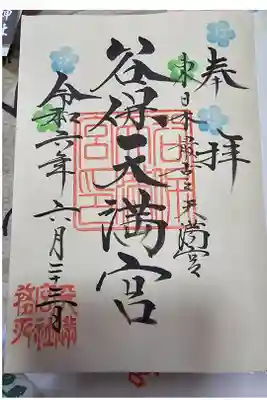 奉拝
東日本最古之天満宮
谷保天満宮
令和六年六月二十三日